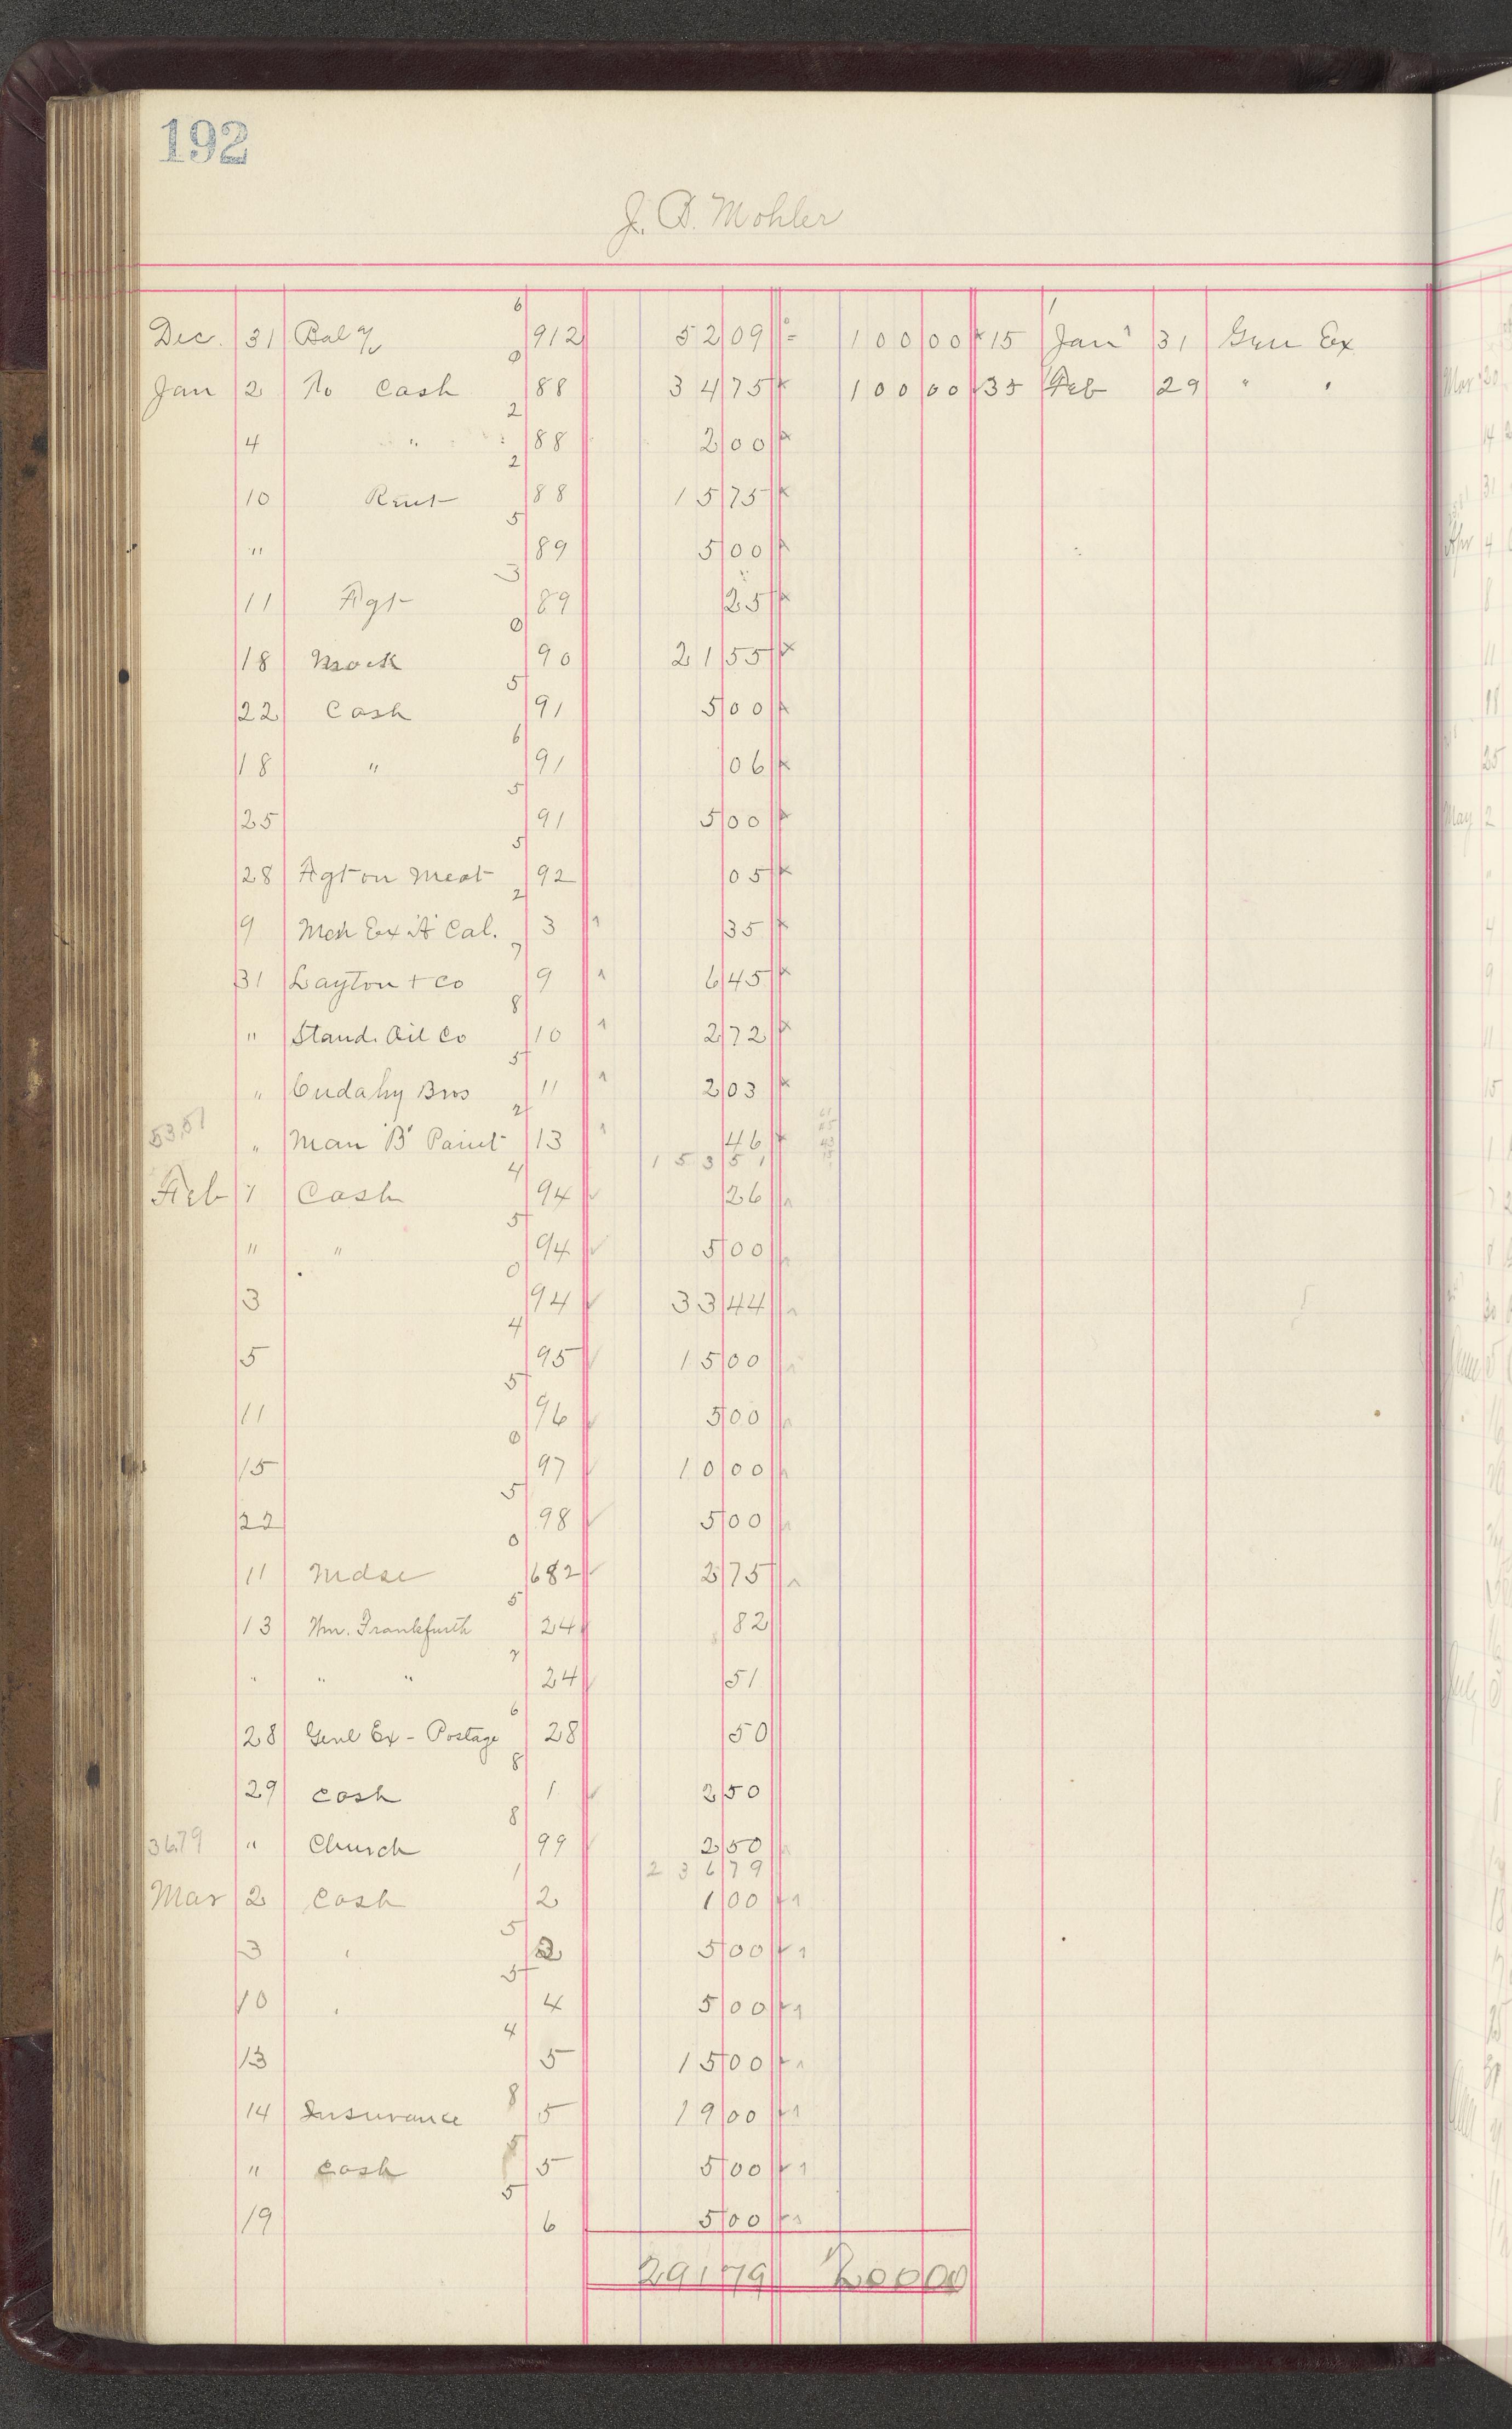 192
J. B. Mohler
Dec. 31 Bal 912 52 09 100 00 15 Jan 31 Gen Ex
Jan 2 To Cash 88 34 75 100 00 35 Feb 29 " "
4 " 88 2 00
10 Rent 88 15 75
" 89 5 00
11 Agt 89 25
18 Mock 90 21 55
22 Cash 91 5 00
18 " 91 06
25 91 5 00
28 Agt on Meat 92 05
9 Mch Ex "A" Cal. 3 35
31 Layton + Co 9 6 45
" Stand. Oil Co 10 2 72
" Cudahy Bros 11 2 03
53.51 " Man "B" Paint 13 46
153 51
Feb 1 Cash 94 26
" " 94 5 00
3 94 33 44
5 95 15 00
11 96 5 00
15 97 10 00
22 98 5 00
11 Mdse 682 2 75
13 Wm. Frankfurth 24 82
" " " 24 51
28 Genl Ex - Postage 28 50
29 Cash 1 2 50
3679 " Church 99 2 50
236 79
Mar 2 Cash 2 1 00
3 " 2 5 00
10 " 4 5 00
13 5 15 00
14 Insurance 5 19 00
" Cash 5 5 00
19 6 5 00
291 79 200 00